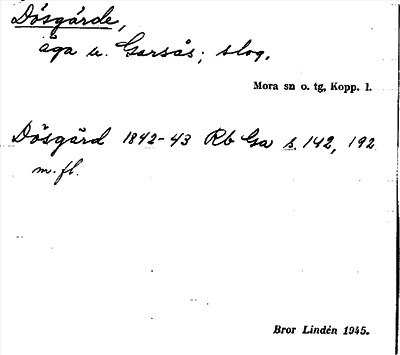 Dösgårde,
äga u. Garsås; slog.
Mora sn o. tg, Kopp. l.
Dösgård 1842-43 Rb Ga s. 142, 192
m. fl.
Bror Lindén 1945.